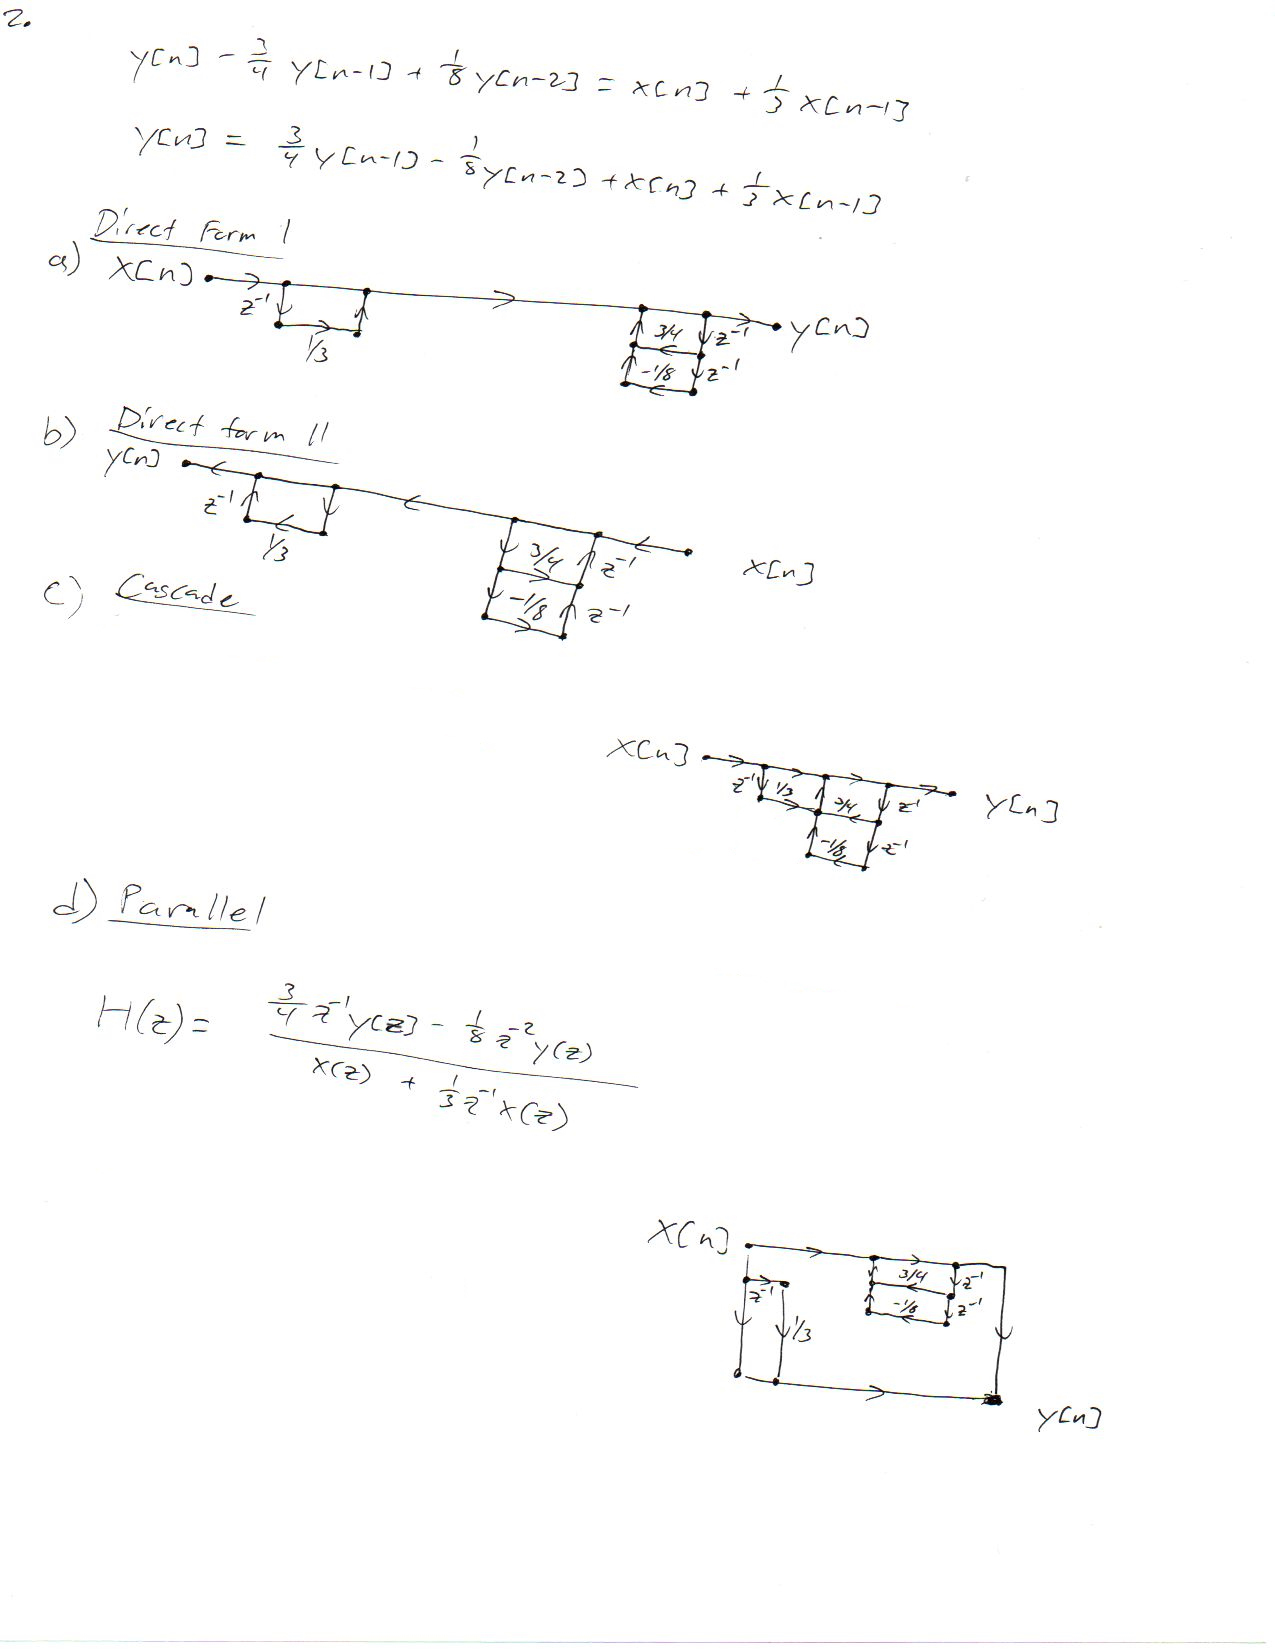 2.
y[n] - 3/4 y[n-1] + 1/8 y[n-2] = x[n] + 1/3 x[n-1]
y[n] = 3/4 y[n-1] - 1/8 y[n-2] + x[n] + 1/3 x[n-1]
Direct Form I
a) X[n]
z⁻¹
1/3
3/4
z⁻¹
-1/8
z⁻¹
y[n]
b) Direct form II
y[n]
z⁻¹
1/3
3/4
z⁻¹
-1/8
z⁻¹
X[n]
c) Cascade
X[n]
z⁻¹
1/3
3/4
z⁻¹
-1/8
z⁻¹
Y[n]
d) Parallel
H(z) = (3/4 z⁻¹ y[z] - 1/8 z⁻² y(z)) / (X(z) + 1/3 z⁻¹ X(z))
X[n]
z⁻¹
1/3
3/4
z⁻¹
-1/8
z⁻¹
y[n]